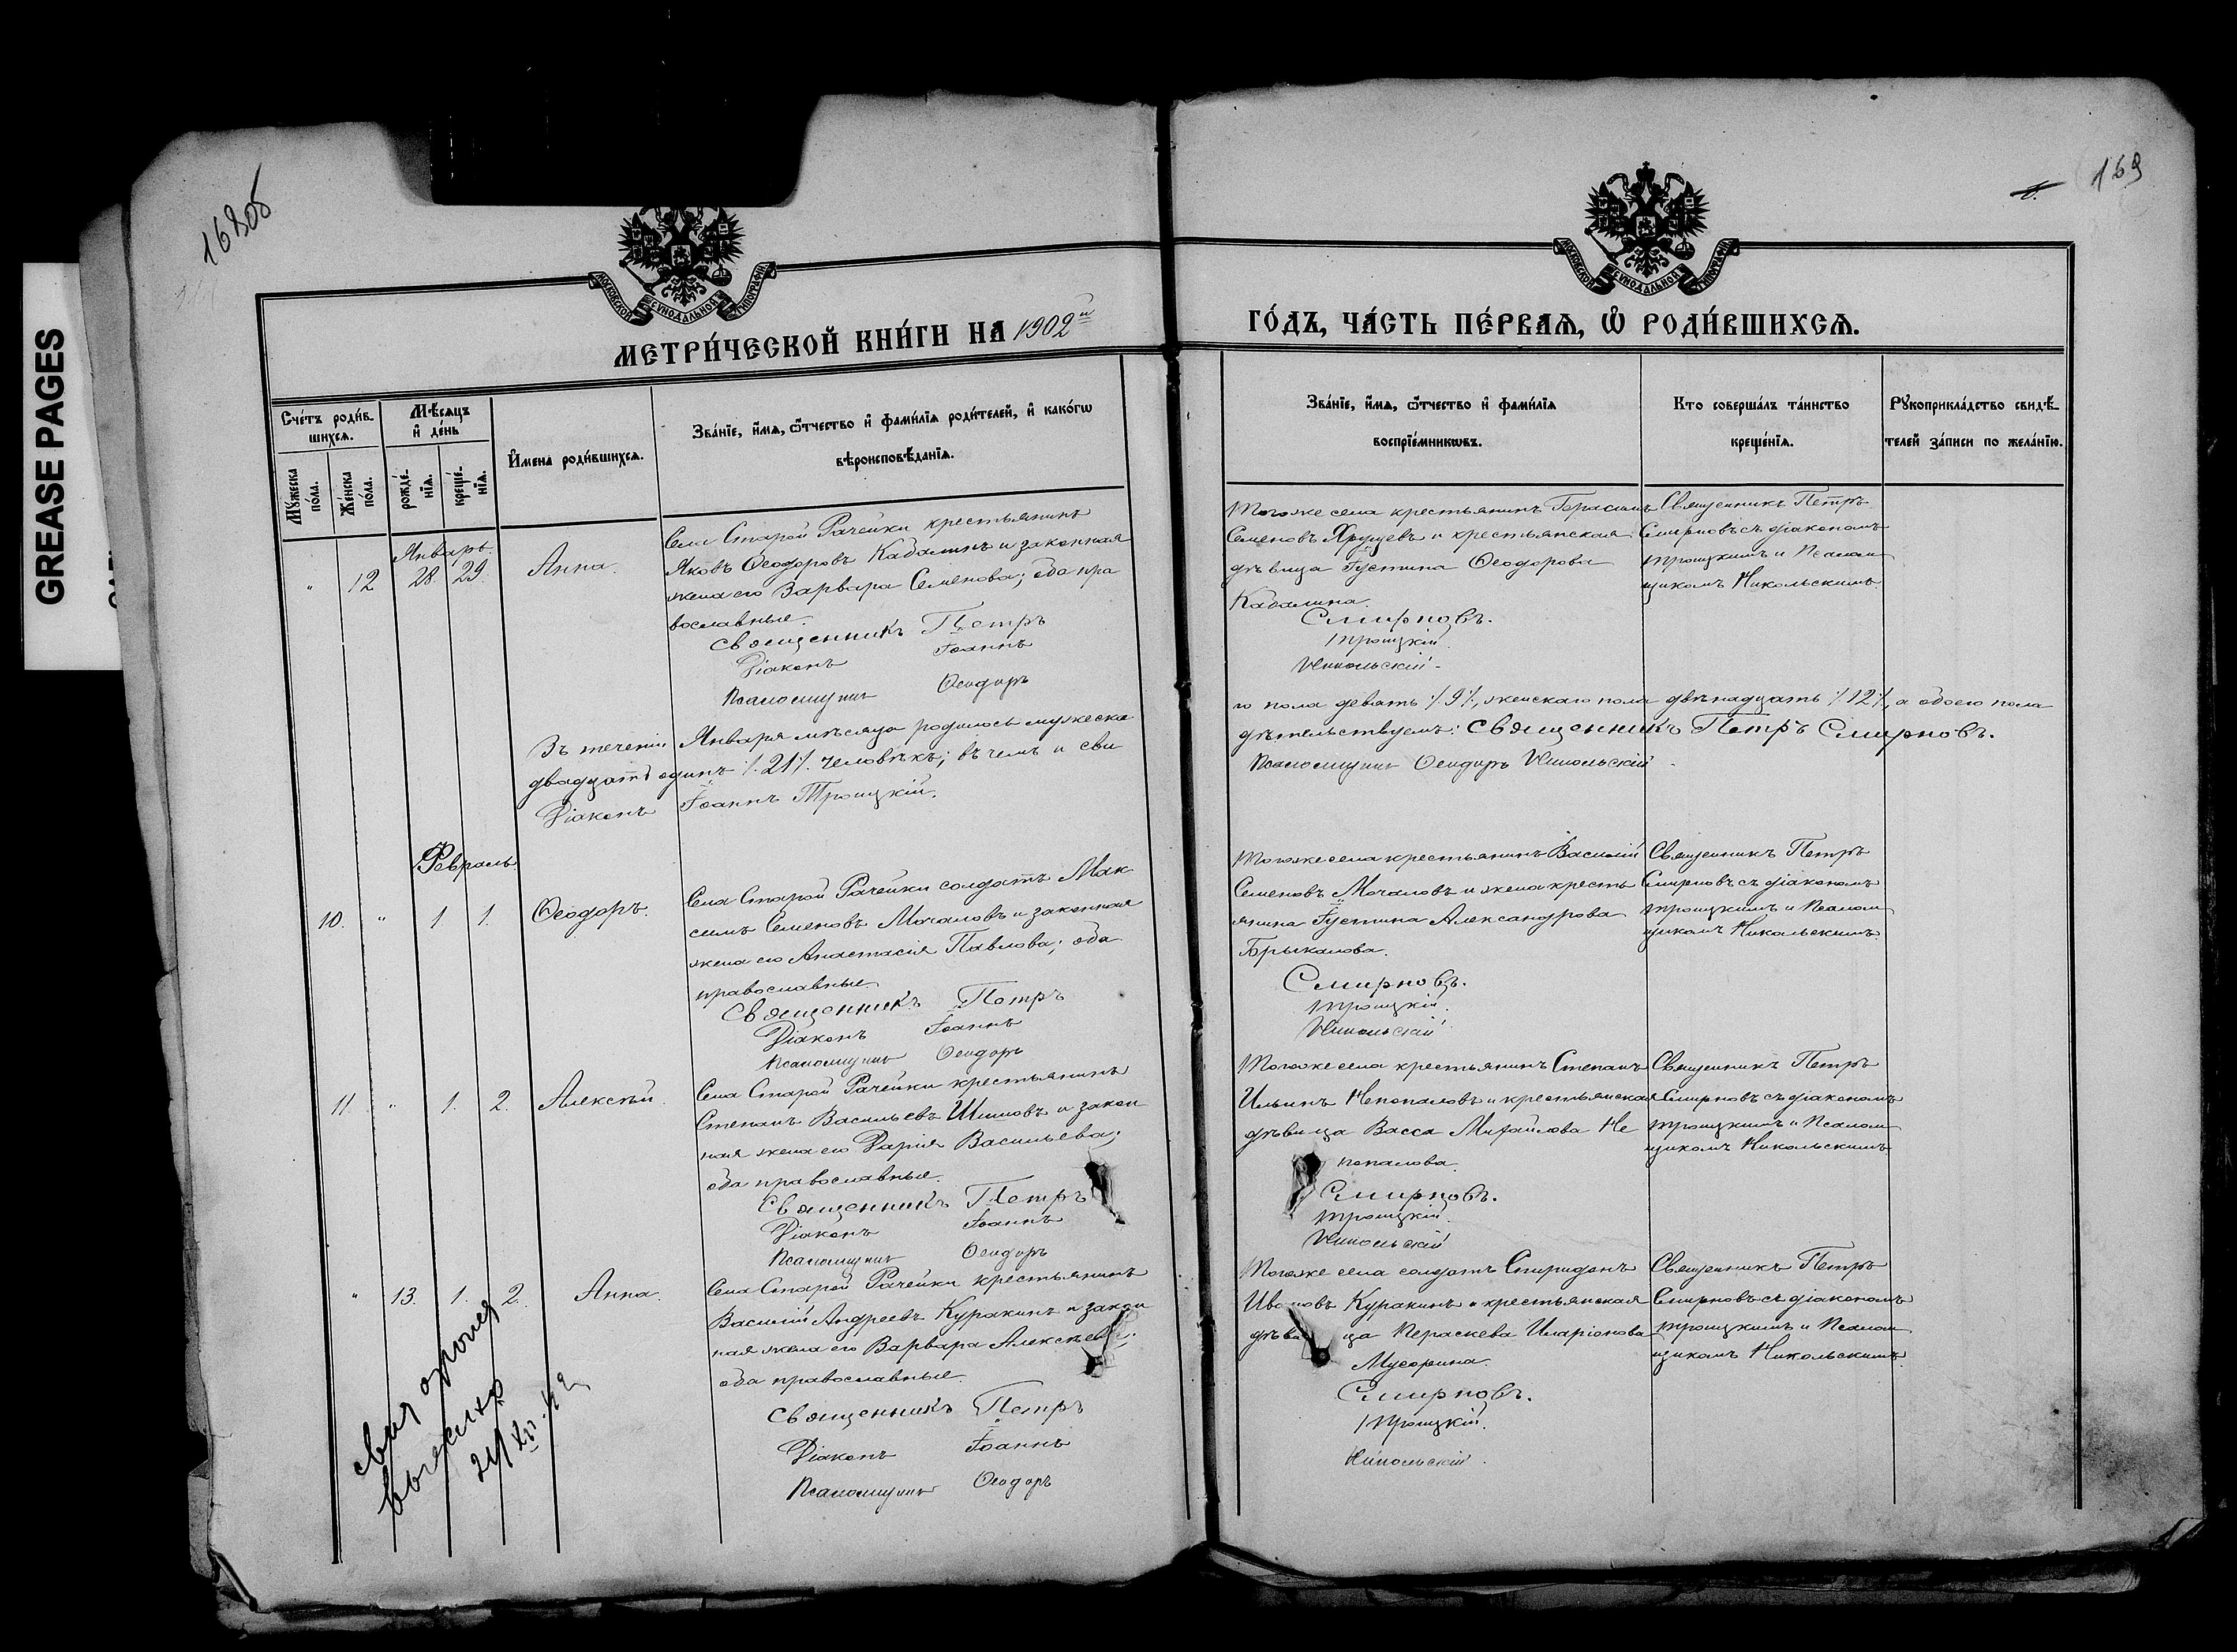 168об
169
GREASE PAGES
МОСКОВСКОЙ СѴНОДАЛЬНОЙ ТИПОГРАФІИ
МОСКОВСКОЙ СѴНОДАЛЬНОЙ ТИПОГРАФІИ
МЕТРИ́ЧЕСКОЙ КНИ́ГИ НА 1902й
ГО́ДЪ, ЧА́СТЬ ПЕ́РВАѦ, Ѡ҆ РОДИ́ВШИХСѦ.
Сче́тъ роди́в-
шихсѧ.
Мꙋ́жеска по́ла.
Же́нска по́ла.
Мѣ́сѧцъ
и҆ де́нь
рожде́-
нїѧ.
креще́-
нїѧ.
И҆мена роди́вшихсѧ.
Зва́нїе, и҆́мѧ, ѻ҆́тчество и҆ фами́лїѧ роди́телей, и҆ како́гѡ
вѣроисповѣ́данїѧ.
Зва́нїе, и҆́мѧ, ѻ҆́тчество и҆ фами́лїѧ
воспрїе́мникѡвъ.
Кто соверша́лъ та́инство
креще́нїѧ.
Рꙋкоприкла́дство свидѣ́-
телей за́писи по жела́нїю.
Январь.
" 12 28. 29. Анна.
Села Старой Рачейки крестьянинъ
Яковъ Ѳеодоровъ Кабалинъ и законная
жена его Варвара Семенова; оба пра
вославные.
Священникъ Петръ
Діаконъ Іоаннъ
Псаломщикъ Ѳеодоръ
Тогоже села крестьянинъ Герасимъ
Семеновъ Хрущевъ и крестьянская
дѣвица Іустина Ѳеодорова
Кабалина.
Смирновъ.
Троицкій.
Никольскій.
Священникъ Петръ
Смирновъ съ діакономъ
Троицкимъ и Псалом
щикомъ Никольскимъ.
Въ теченіи Января мѣсяца родилось мужеска
го пола девять /9/, женскаго пола двѣнадцать /12/, а обоего пола
двадцать одинъ /21/ человѣкъ; въ чемъ и сви
дѣтельствуемъ: Священникъ Петръ Смирновъ.
Діаконъ Іоаннъ Троицкій.
Псаломщикъ Ѳеодоръ Никольскій
Февраль.
10. " 1 1. Ѳеодоръ.
Села Старой Рачейки солдатъ Мак
симъ Семеновъ Мочаловъ и законная
жена его Анастасія Павлова; оба
православные.
Священникъ Петръ
Діаконъ Іоаннъ
Псаломщикъ Ѳеодоръ
Тогоже села крестьянинъ Василій
Семеновъ Мочаловъ и жена кресть
янина Іустина Александрова
Брыкалова.
Смирновъ.
Троицкій.
Никольскій
Священникъ Петръ
Смирновъ съ діакономъ
Троицкимъ и Псалом
щикомъ Никольскимъ.
11. " 1. 2. Алексѣй.
Села Старой Рачейки крестьянинъ
Степанъ Васильевъ Шишовъ и закон
ная жена его Дарія Васильева;
оба православные.
Священникъ Петръ
Діаконъ Іоаннъ
Псаломщикъ Ѳеодоръ
Тогоже села крестьянинъ Степанъ
Ильинъ Непопаловъ и крестьянская
дѣвица Васса Михайлова Не
попалова.
Смирновъ.
Троицкій.
Никольскій
Священникъ Петръ
Смирновъ съ діакономъ
Троицкимъ и Псалом
щикомъ Никольскимъ
" 13. 1. 2. Анна.
Села Старой Рачейки крестьянинъ
Василій Андреевъ Куракинъ и закон
ная жена его Варвара Алексѣева;
оба православные.
Священникъ Петръ
Діаконъ Іоаннъ
Псаломщикъ Ѳеодоръ
Тогоже села солдатъ Спиридонъ
Ивановъ Куракинъ и крестьянская
дѣвица Параскева Иларіонова
Мусорина.
Смирновъ.
Троицкій.
Никольскій.
Священникъ Петръ
Смирновъ съ діакономъ
Троицкимъ и Псалом
щикомъ Никольскимъ.